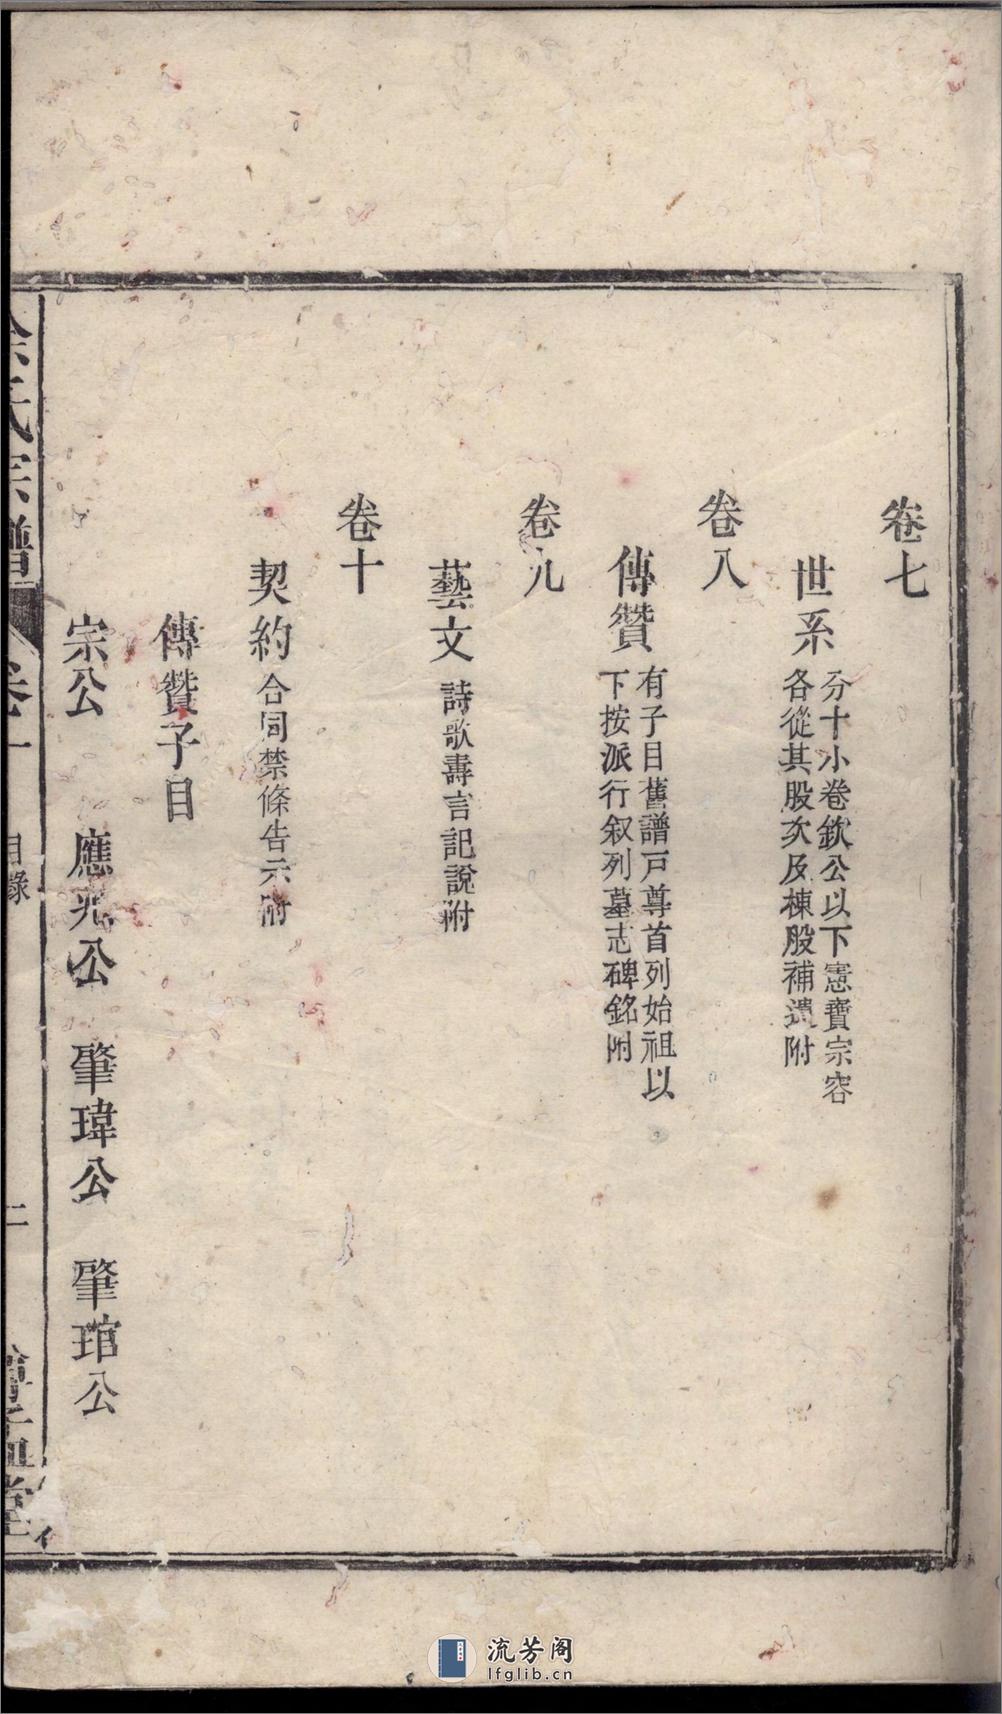 卷七
世系 分十小卷欽公以下憲寶宗容
各從其股次及棟股補遺附
卷八
傳贊 有子目舊譜戸尊首列始祖以
下按派行叙列墓志碑銘附
卷九
藝文 詩歌壽言記說附
卷十
契約 合同禁條告示附
傳贊子目
宗公 應兆公 肇瑋公 肇琯公
氏宗譜 卷一 目錄 二 堂
流芳阁
lfglib.cn